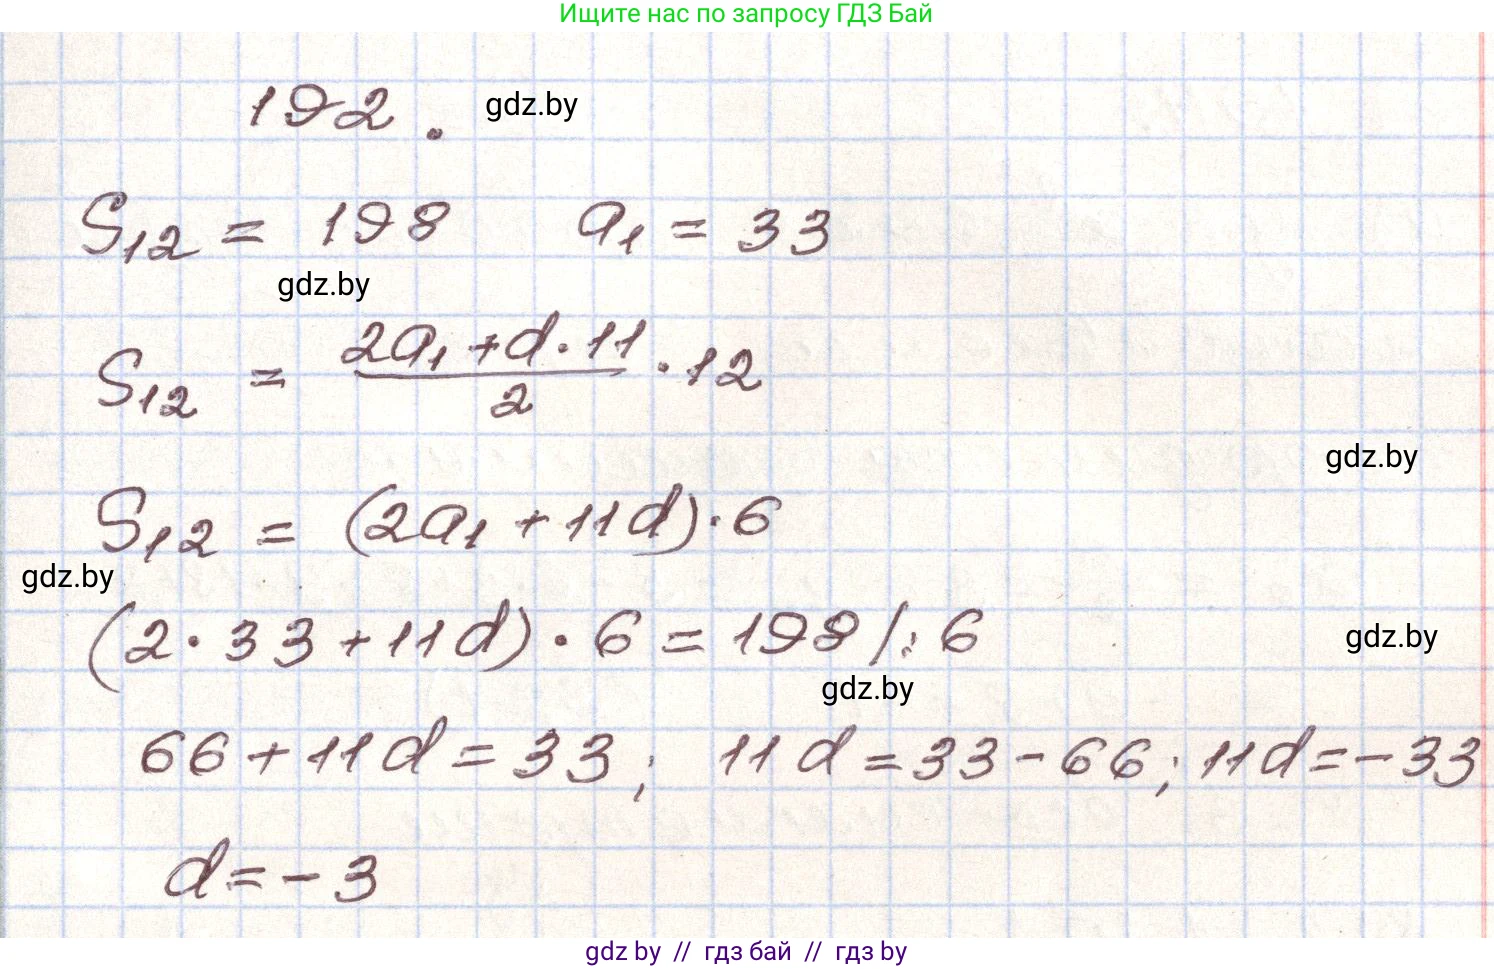 Ищите нас по запросу ГДЗ Бай
192.
gdz.by
S₁₂ = 198 a₁ = 33
gdz.by
S₁₂ = (2a₁ + d · 11)/2 · 12
gdz.by
S₁₂ = (2a₁ + 11d) · 6
gdz.by
(2 · 33 + 11d) · 6 = 198 /: 6
gdz.by
gdz.by
66 + 11d = 33; 11d = 33 - 66; 11d = -33
d = -3
gdz by // гдз бай // гдз by